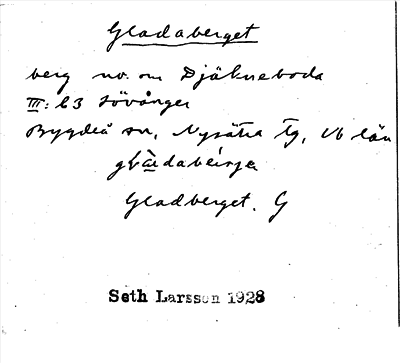 Gladaberget
berg nv. om Djäkneboda
III: b3 Lövånger
Bygdeå sn, Nysätra tg, Vb län
Gladberget. G
Seth Larsson 1928